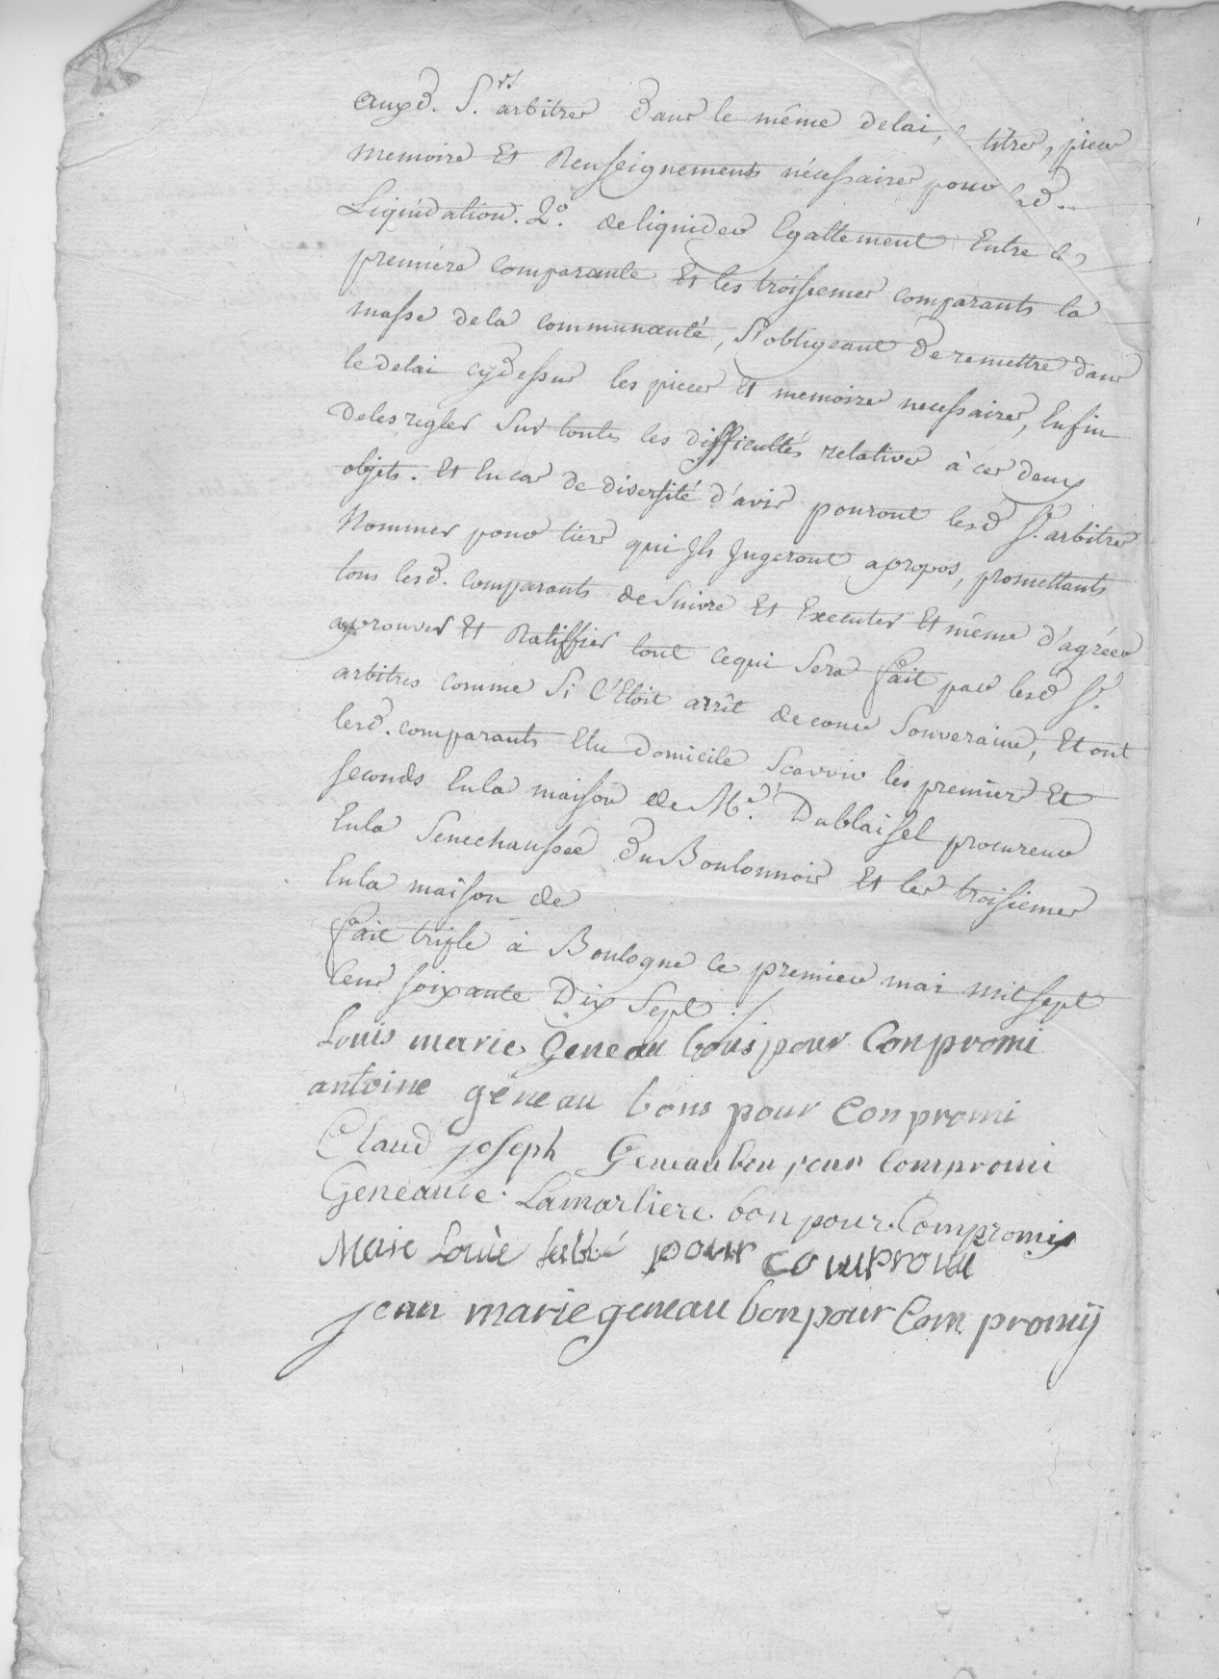 auxd. S.rs arbitres dans le même delai, titres, pieces
memoires Et Renseignements nécessaires pour lad.
Liquidation. 2.° de liquider Egallement Entre la
premiere comparante Et les troisiemes comparants la
masse dela communauté, s'obligeant De remettre dans
le delai cydessus les pieces Et memoires necessaires, Enfin
deles regler Sur toutes les difficultés relatives à ces deux
objets. Et En cas de diversité d'avis pouront lesd. Srs. arbitres
Nommer pour tiers qui Ils Jugeront apropos, promettants
tous lesd. comparants de Suivre Et Executer Et même d'agréer
approuver Et Ratiffier tout cequi Sera fait par lesd. Srs.
arbitres comme Si C'Etoit arrît de cour Souveraine, Et ont
lesd. comparants Elu Domicile Scavoir les premiers Et
seconds Enla maison de Me. Dublaisel procureur
Enla Senechaussée du Boulonnois Et les troisiemes
Enla maison de
fait triple à Boulogne le premier mai mil sept
cent soixante Dix Sept ./.
Louis marie Geneau bons pour Conpromi
antoine géneau bons pour Conpromi
Claud joseph Geneau bon pour Compromi
Geneau de Lamarliere bon pour Compromis
Marie Louise pour compromi
jean marie geneau bon pour Com promij